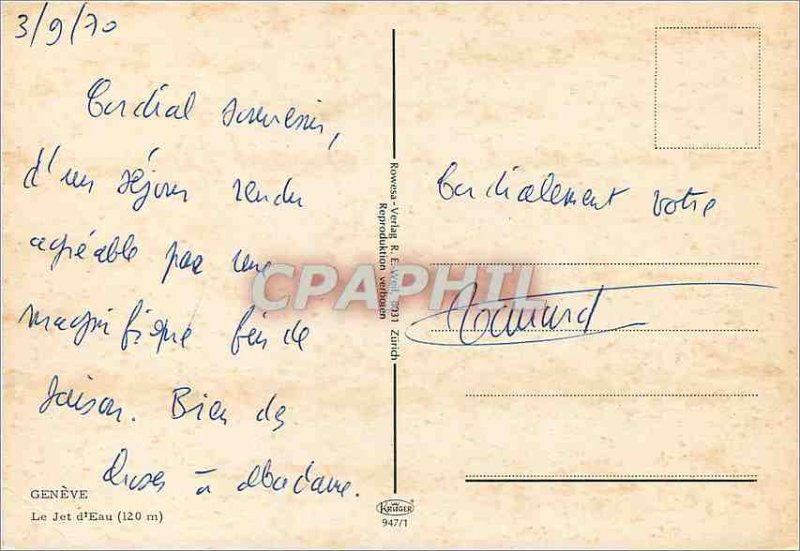 3/9/70
Cordial souvenir,
d'un séjour rendu
agréable par une
magnifique fin de
saison. Bien des
choses à Madame.
GENÈVE
Le Jet d'Eau (120 m)
Rowesa-Verlag R. E. Weil, 8031 Zürich
Reproduktion verboten
KRÜGER
947/1
Cordialement votre
CPAPHIL